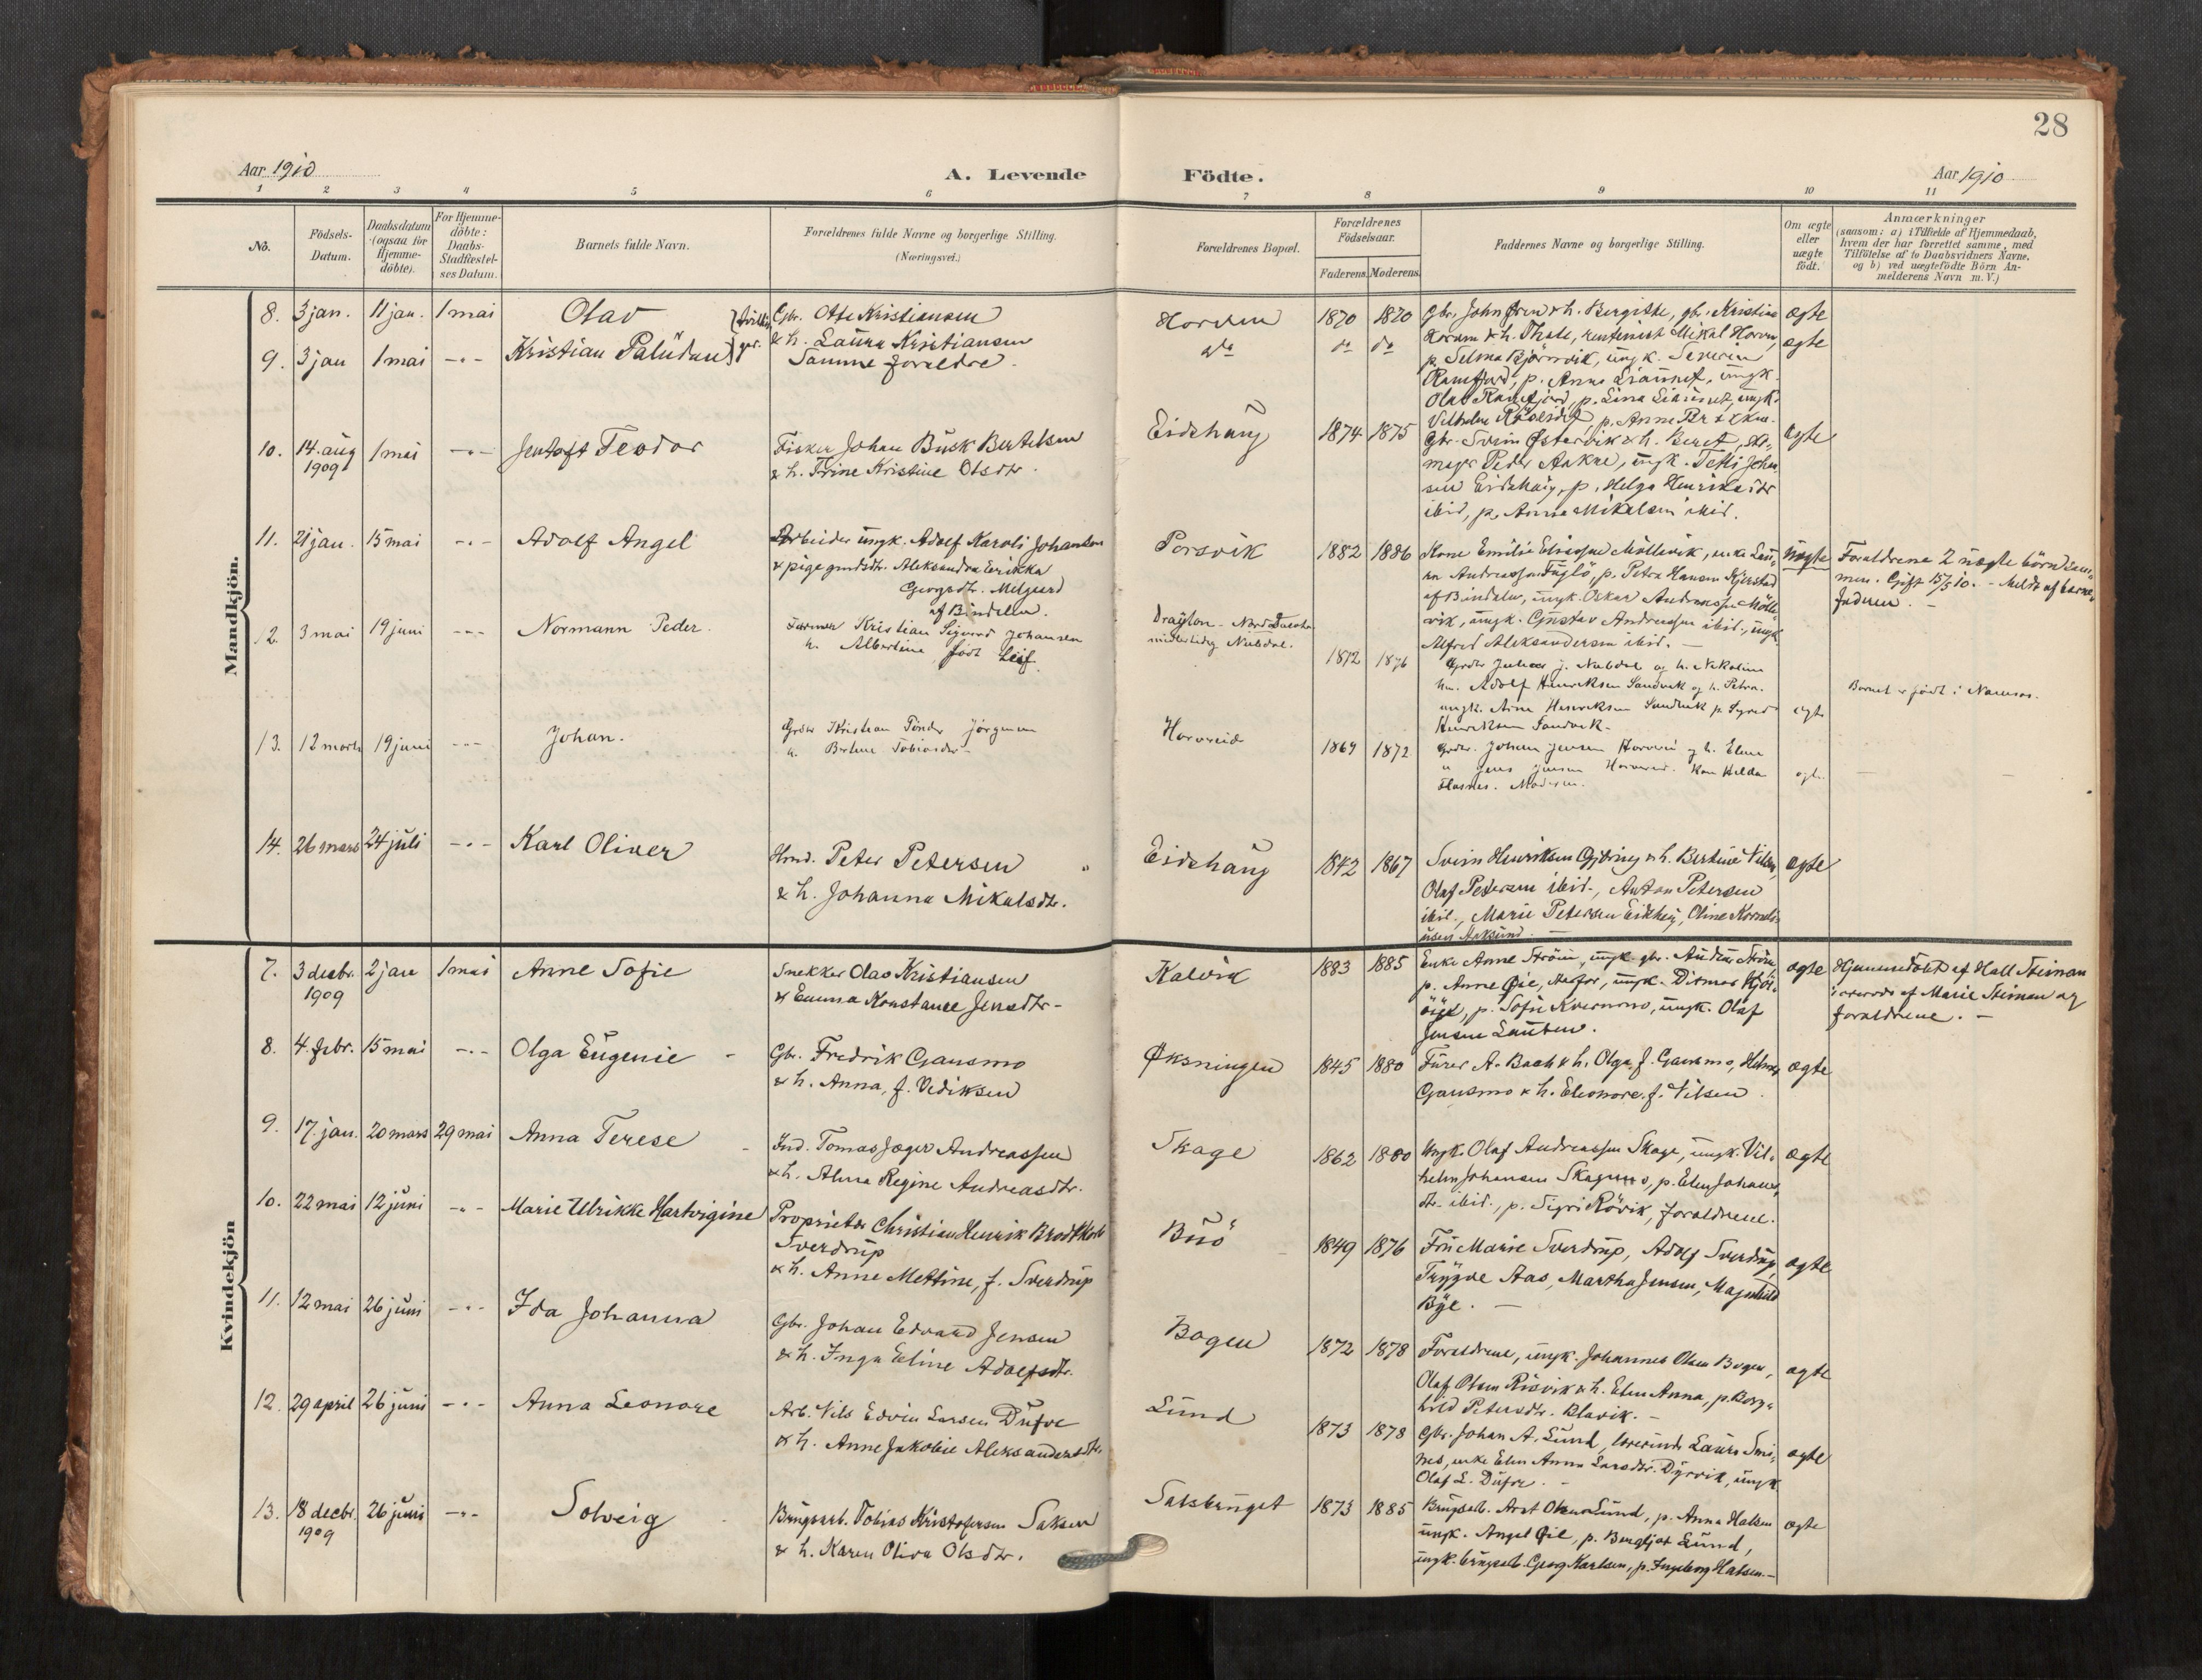 28
Aar 1910
A. Levende Födte.
Aar 1910
1 2 3 4 5 6 7 8 9 10 11
No.
Födsels-
Datum.
Daabsdatum
(ogsaa for
Hjemme-
döbte).
For Hjemme-
döbte:
Daabs-
Stadfæstel-
ses Datum.
Barnets fulde Navn.
Forældrenes fulde Navne og borgerlige Stilling.
(Næringsvei.)
Forældrenes Bopæl.
Forældrenes
Födselsaar.
Faderens. Moderens.
Faddernes Navne og borgerlige Stilling.
Om ægte
eller
uægte
födt.
Anmærkninger
(saasom: a) i Tilfælde af Hjemmedaab,
hvem der har forrettet samme, med
Tilföielse af to Daabsvidners Navne,
og b) ved uægtefödte Börn An-
melderens Navn m. V.)
Mandkjön.
8. 3 jan. 11 jan. 1 mai Olav
Gbr. Otto Kristiansen
& h. Laura Kristiansen
Horven 1870 1870
ægte
9. 3 jan 1 mai -"- Kristian Paludan
Samme foraldre.
do do do
ægte
Gbr. John Øren & h. Bergitte, gbr. Kristine
Horven & h. Thale, rentenist Mikal Horven,
p. Selma Bjørnvik, ungk. Severin
Ramfjord, p. Anna Liaunet, ungk.
Olav Ramfjord, p. Lina Liaunet, ungk.
10. 14. aug
1909
1 mai -"- Jentoft Teodor
Fisker Johan Busk Bertelsen
& h. Trine Kristine Olsdtr.
Eidshaug 1874 1875
Gbr. Svein Østervik & h. Beret,
Peder Aakne, ungk.
sen Eidshaug, p. Helga Henriksdtr
ibid, p. Anna Mikalsen ibid.
ægte
11. 21 jan. 15 mai -"- Adolf Angel
Arbeider ungk. Adolf Karoli Johansen
& pige grmdsdtr. Aleksandra Erikka
Georgsdtr. Milgaard
af Bindalen.
Porsvik 1882 1886
Kone Emilie Eliassen Möllevik, enke Lau-
ra Andreassen Fuglö, p. Petra Hansen Kjerstad
af Bindalen, ungk. Oskar Andreassen Mölle-
vik, ungk. Gustav Andreassen ibid., ungk.
Alfred Aleksandersen ibid. -
uægte
Foraldrene 2 uægte börn sam-
men. Gift 15/5 10. - Meldt af barne-
faderen. -
12. 3 mai 19 juni -"- Normann Peder.
Farmer Kristian Sigvard Johansen
h. Albertine född Leif.
Drayton - Nord Dacota
midlertidig Nubdal.
1872 1876
Grdbr Julius J. Nubdal og h. Nikoline
hm. Adolf Henriksen Sandvik og h. Petra.
ungk. Arne Henriksen Sandvik p. Sigrid
Henriksen Sandvik.
ægte
Barnet er födt i Namsos.
13. 12 marts 19 juni -"- Johan.
Grdbr Kristian Tönder Jörgensen
h. Berline Tobiasdtr
Horvereid 1869 1872
Grdbr. Johan Jensen Horvereid og h. Eline
" Jens Jensen Horvereid. Kone Helda
Flasnes. Moderen.
ægte
14. 26 mars 24 juli -"- Karl Oliver
Hmd. Peter Petersen
& h. Johanna Mikalsdtr.
Eidshaug 1842 1867
Svein Henriksen Gjöring & h. Bertine Nilsen,
Olaf Petersen ibid., Anton Petersen
ibid., Marie Petersen Eidshaug, Oline Korneli-
ussen Arksund. -
ægte
Kvindekjön
7. 3 decbr.
1909
2 jan 1 mai Anne Sofie
Snekker Olav Kristiansen
& Emma Konstance Jensdtr -
Kalvik 1883 1885
Enke Anne Ström, ungk. gbr. Andreas Ström
p. Anne Øie, ungk. Ditmar
p. Sofie Kvernmo, ungk. Olaf
Jensen
ægte
Hjemmedöbt af Hall Steiman
i overvær af Marie Steiman og
foraldrene. -
8. 4. febr. 15 mai -"- Olga Eugenie
Gbr. Fredrik Gansmo
& h. Anna, f. Vediksen
Øksningen 1845 1880
Furer A. Bach & h. Olga, f. Gansmo, Helmer
Gansmo & h. Eleonore, f. Nilsen
ægte
9. 17. jan. 20 mars 29 mai Anna Terese
Ind. Tomas Jæger Andreassen
& h. Alma Regine Andreasdtr.
Skage 1862 1880
Ungk. Olaf Andreassen Skage, ungk. Vil-
helm Johansen Skagmo, p. Elen Johans-
dtr. ibid., p. Sigri Rövik, foraldrene.
ægte
10. 22 mai 12 juni -"- Marie Ulrikke Hartvigine
Proprietær Christian Henrik Brodtkorb
Sverdrup
& h. Anne Mettine, f. Sverdrup
Buö 1849 1876
Fru Marie Sverdrup, Adolf Sverdrup,
Trygve Aas, Martha Jensen, Magnhild
Bye. -
ægte
11. 12 mai 26 juni -"- Ida Johanna
Gbr. Johan Edvard Jensen
& h. Inga Eline Adolfsdtr.
Bogen 1872 1878
Foraldrene, ungk. Johannes Olsen Bogen,
Olaf Olsen Risvik & h. Elen Anna, p. Borg-
hild Petersdtr. Blavik. -
ægte
12. 29 april 26 juni -"- Anna Leonore
Arb. Nils Edvin Larsen Dufve
& h. Anne Jakobie Aleksandersdtr.
Lund 1873 1878
Gbr. Johan A. Lund, Laura Smi-
nes, enke Elen Anna Larsdtr. Dyrvik, ungk
Olaf L. Dufve. -
ægte
13. 18 decbr.
1909
26 juni -"- Solveig
Brugsarb. Tobias Kristofersen Saksen
& h. Karen Oliva Olsdtr.
Salsbruget 1873 1885
Brugsarb. Arst Olsen Lund, p. Anna Halsen
ungk. Angel Øie, p. Bergljot Lund,
ungk. brugsarb. Georg Karlsen, p. Ingeborg Halsen. -
ægte